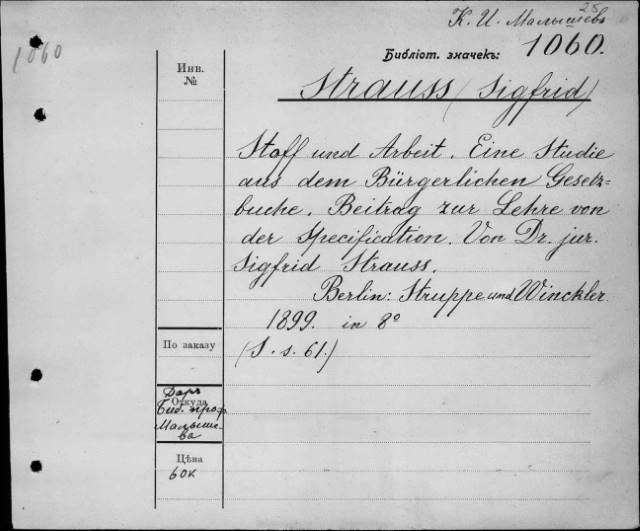 К. И. Малышевъ
25
1060
Библіот. значекъ: 1060.
Инв.
№
Strauss (Sigfrid)
Stoff und Arbeit. Eine Studie
aus dem Bürgerlichen Gesetz=
buche. Beitrag zur Lehre von
der Specification. Von Dr. jur.
Sigfrid Strauss.
Berlin: Struppe und Winckler.
1899. in 8°
По заказу
(S. s. 61.)
Даръ
Откуда
Биб. проф.
Малыше-
ва
Цѣна
60к